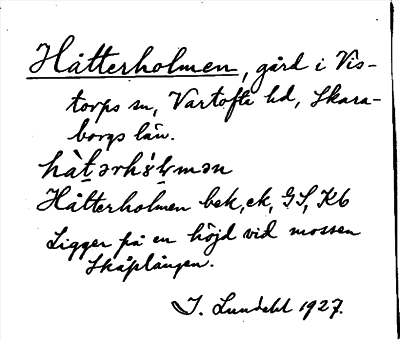 Håtterholmen, gård i Vis-
torps sn, Vartofta hd, Skara-
borgs län.
hàt̠ərhɔ́l̠mən
Håtterholmen bek, ek, GS, Kb
Ligger på en höjd vid mossen
Skåplången.
I. Lundahl 1927.